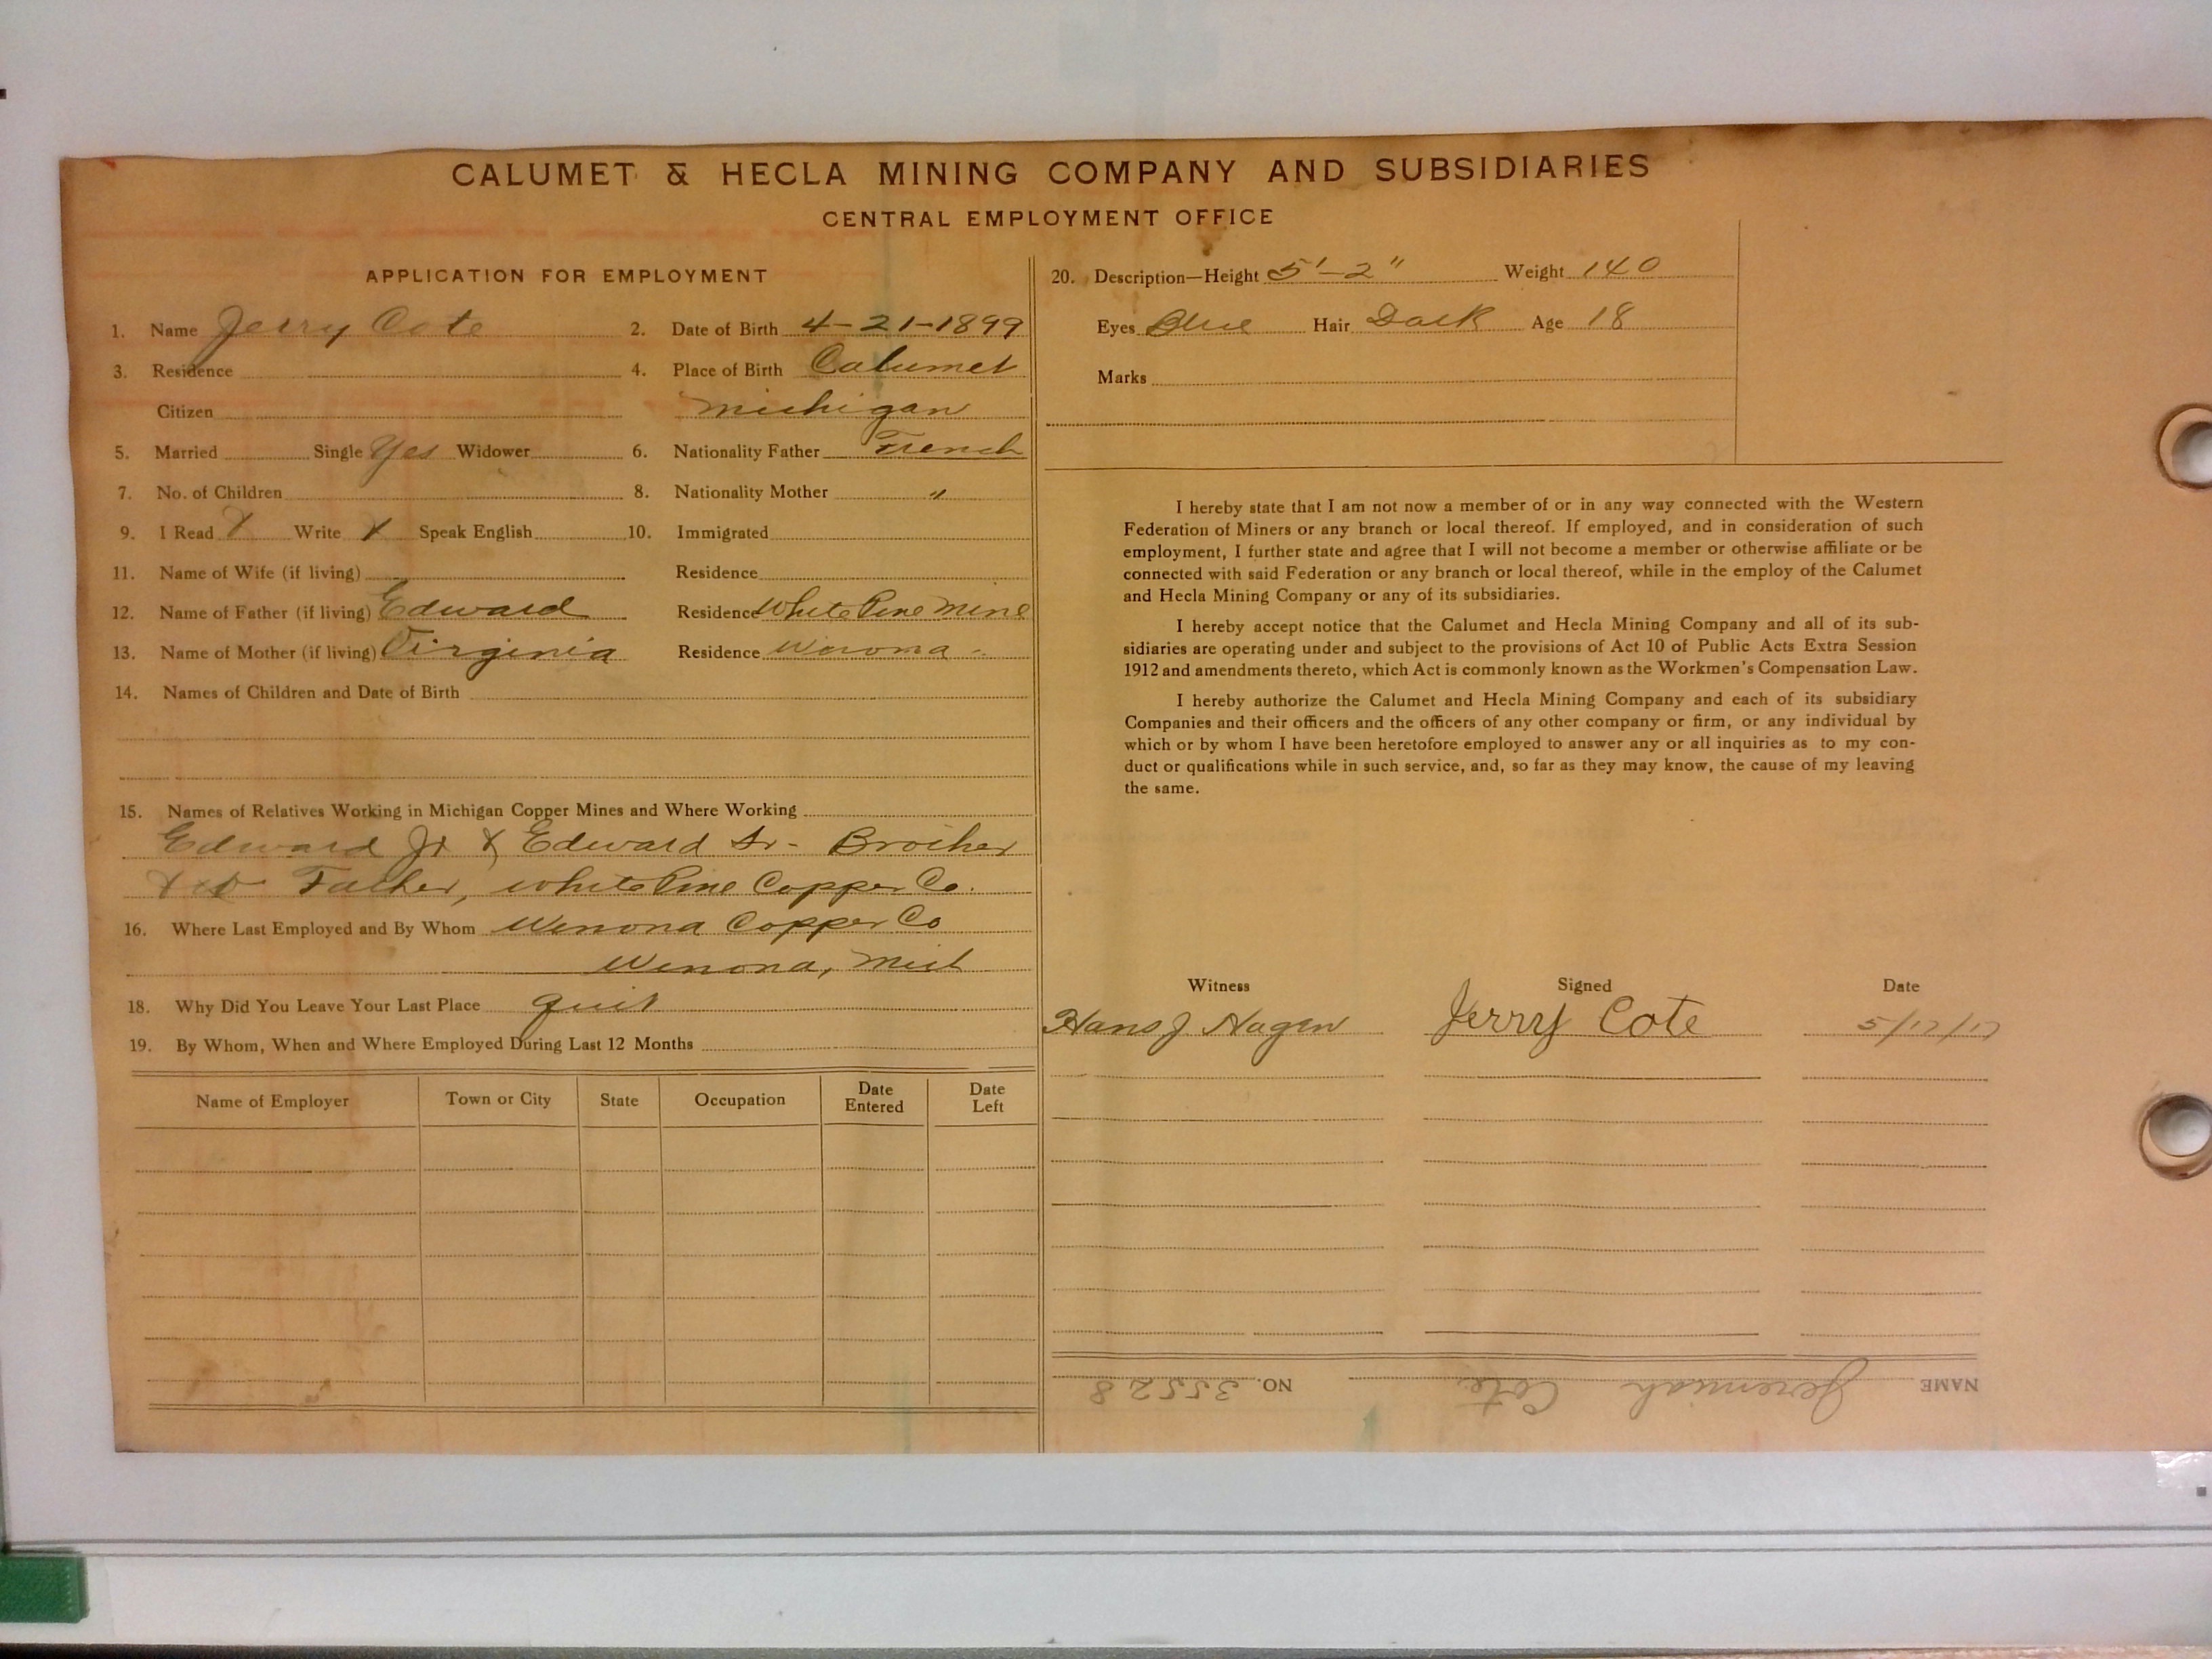 CALUMET & HECLA MINING COMPANY AND SUBSIDIARIES
CENTRAL EMPLOYMENT OFFICE
APPLICATION FOR EMPLOYMENT
1. Name Jerry Cote 2. Date of Birth 4-21-1899
3. Residence 4. Place of Birth Calumet
Citizen Michigan
5. Married Single Yes Widower 6. Nationality Father French
7. No. of Children 8. Nationality Mother "
9. I Read X Write X Speak English 10. Immigrated
11. Name of Wife (if living) Residence
12. Name of Father (if living) Edward Residence White Pine Mine
13. Name of Mother (if living) Virginia Residence Winona
14. Names of Children and Date of Birth
15. Names of Relatives Working in Michigan Copper Mines and Where Working
Edward Jr & Edward Sr - Brother
Father, White Pine Copper Co.
16. Where Last Employed and By Whom Winona Copper Co
Winona, Mich
18. Why Did You Leave Your Last Place quit
19. By Whom, When and Where Employed During Last 12 Months
Name of Employer Town or City State Occupation Date Entered Date Left
20. Description—Height 5'-2" Weight 140
Eyes Blue Hair Dark Age 18
Marks
I hereby state that I am not now a member of or in any way connected with the Western
Federation of Miners or any branch or local thereof. If employed, and in consideration of such
employment, I further state and agree that I will not become a member or otherwise affiliate or be
connected with said Federation or any branch or local thereof, while in the employ of the Calumet
and Hecla Mining Company or any of its subsidiaries.
I hereby accept notice that the Calumet and Hecla Mining Company and all of its sub-
sidiaries are operating under and subject to the provisions of Act 10 of Public Acts Extra Session
1912 and amendments thereto, which Act is commonly known as the Workmen's Compensation Law.
I hereby authorize the Calumet and Hecla Mining Company and each of its subsidiary
Companies and their officers and the officers of any other company or firm, or any individual by
which or by whom I have been heretofore employed to answer any or all inquiries as to my con-
duct or qualifications while in such service, and, so far as they may know, the cause of my leaving
the same.
Witness Signed Date
Hans J Hagen Jerry Cote 5/17/17
NAME Jeremiah Cote NO. 35528